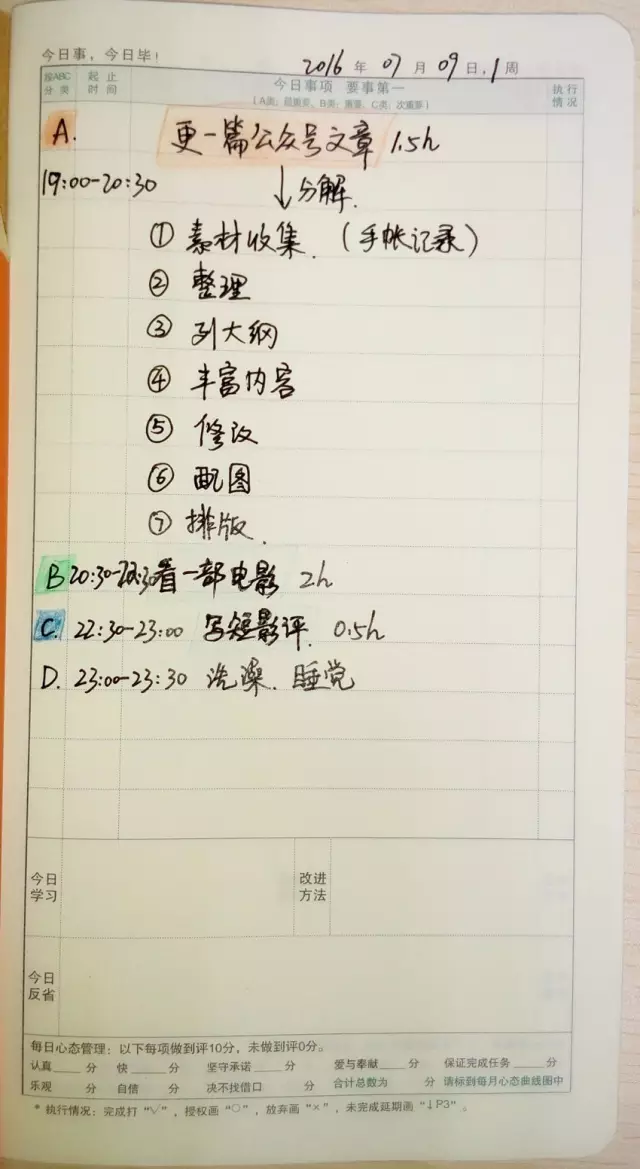 今日事，今日毕！
2016年07月09日,1周
按ABC分类 起止时间 今日事项 要事第一 执行情况
（A类：最重要、B类：重要、C类：次重要）
A. 更一篇公众号文章 1.5h
19:00-20:30 ↓分解.
① 素材收集.（手帐记录）
② 整理
③ 列大纲
④ 丰富内容
⑤ 修改
⑥ 配图
⑦ 排版.
B 20:30-22:30看一部电影 2h
C. 22:30-23:00 写短影评. 0.5h
D. 23:00-23:30 洗澡. 睡觉
今日学习 改进方法
今日反省
每日心态管理：以下每项做到评10分，未做到评0分。
认真____分 快____分 坚守承诺____分 爱与奉献____分 保证完成任务____分
乐观____分 自信____分 决不找借口____分 合计总数为____分 请标到每月心态曲线图中
* 执行情况：完成打“√”，授权画“○”，放弃画“×”，未完成延期画“↓P3”。